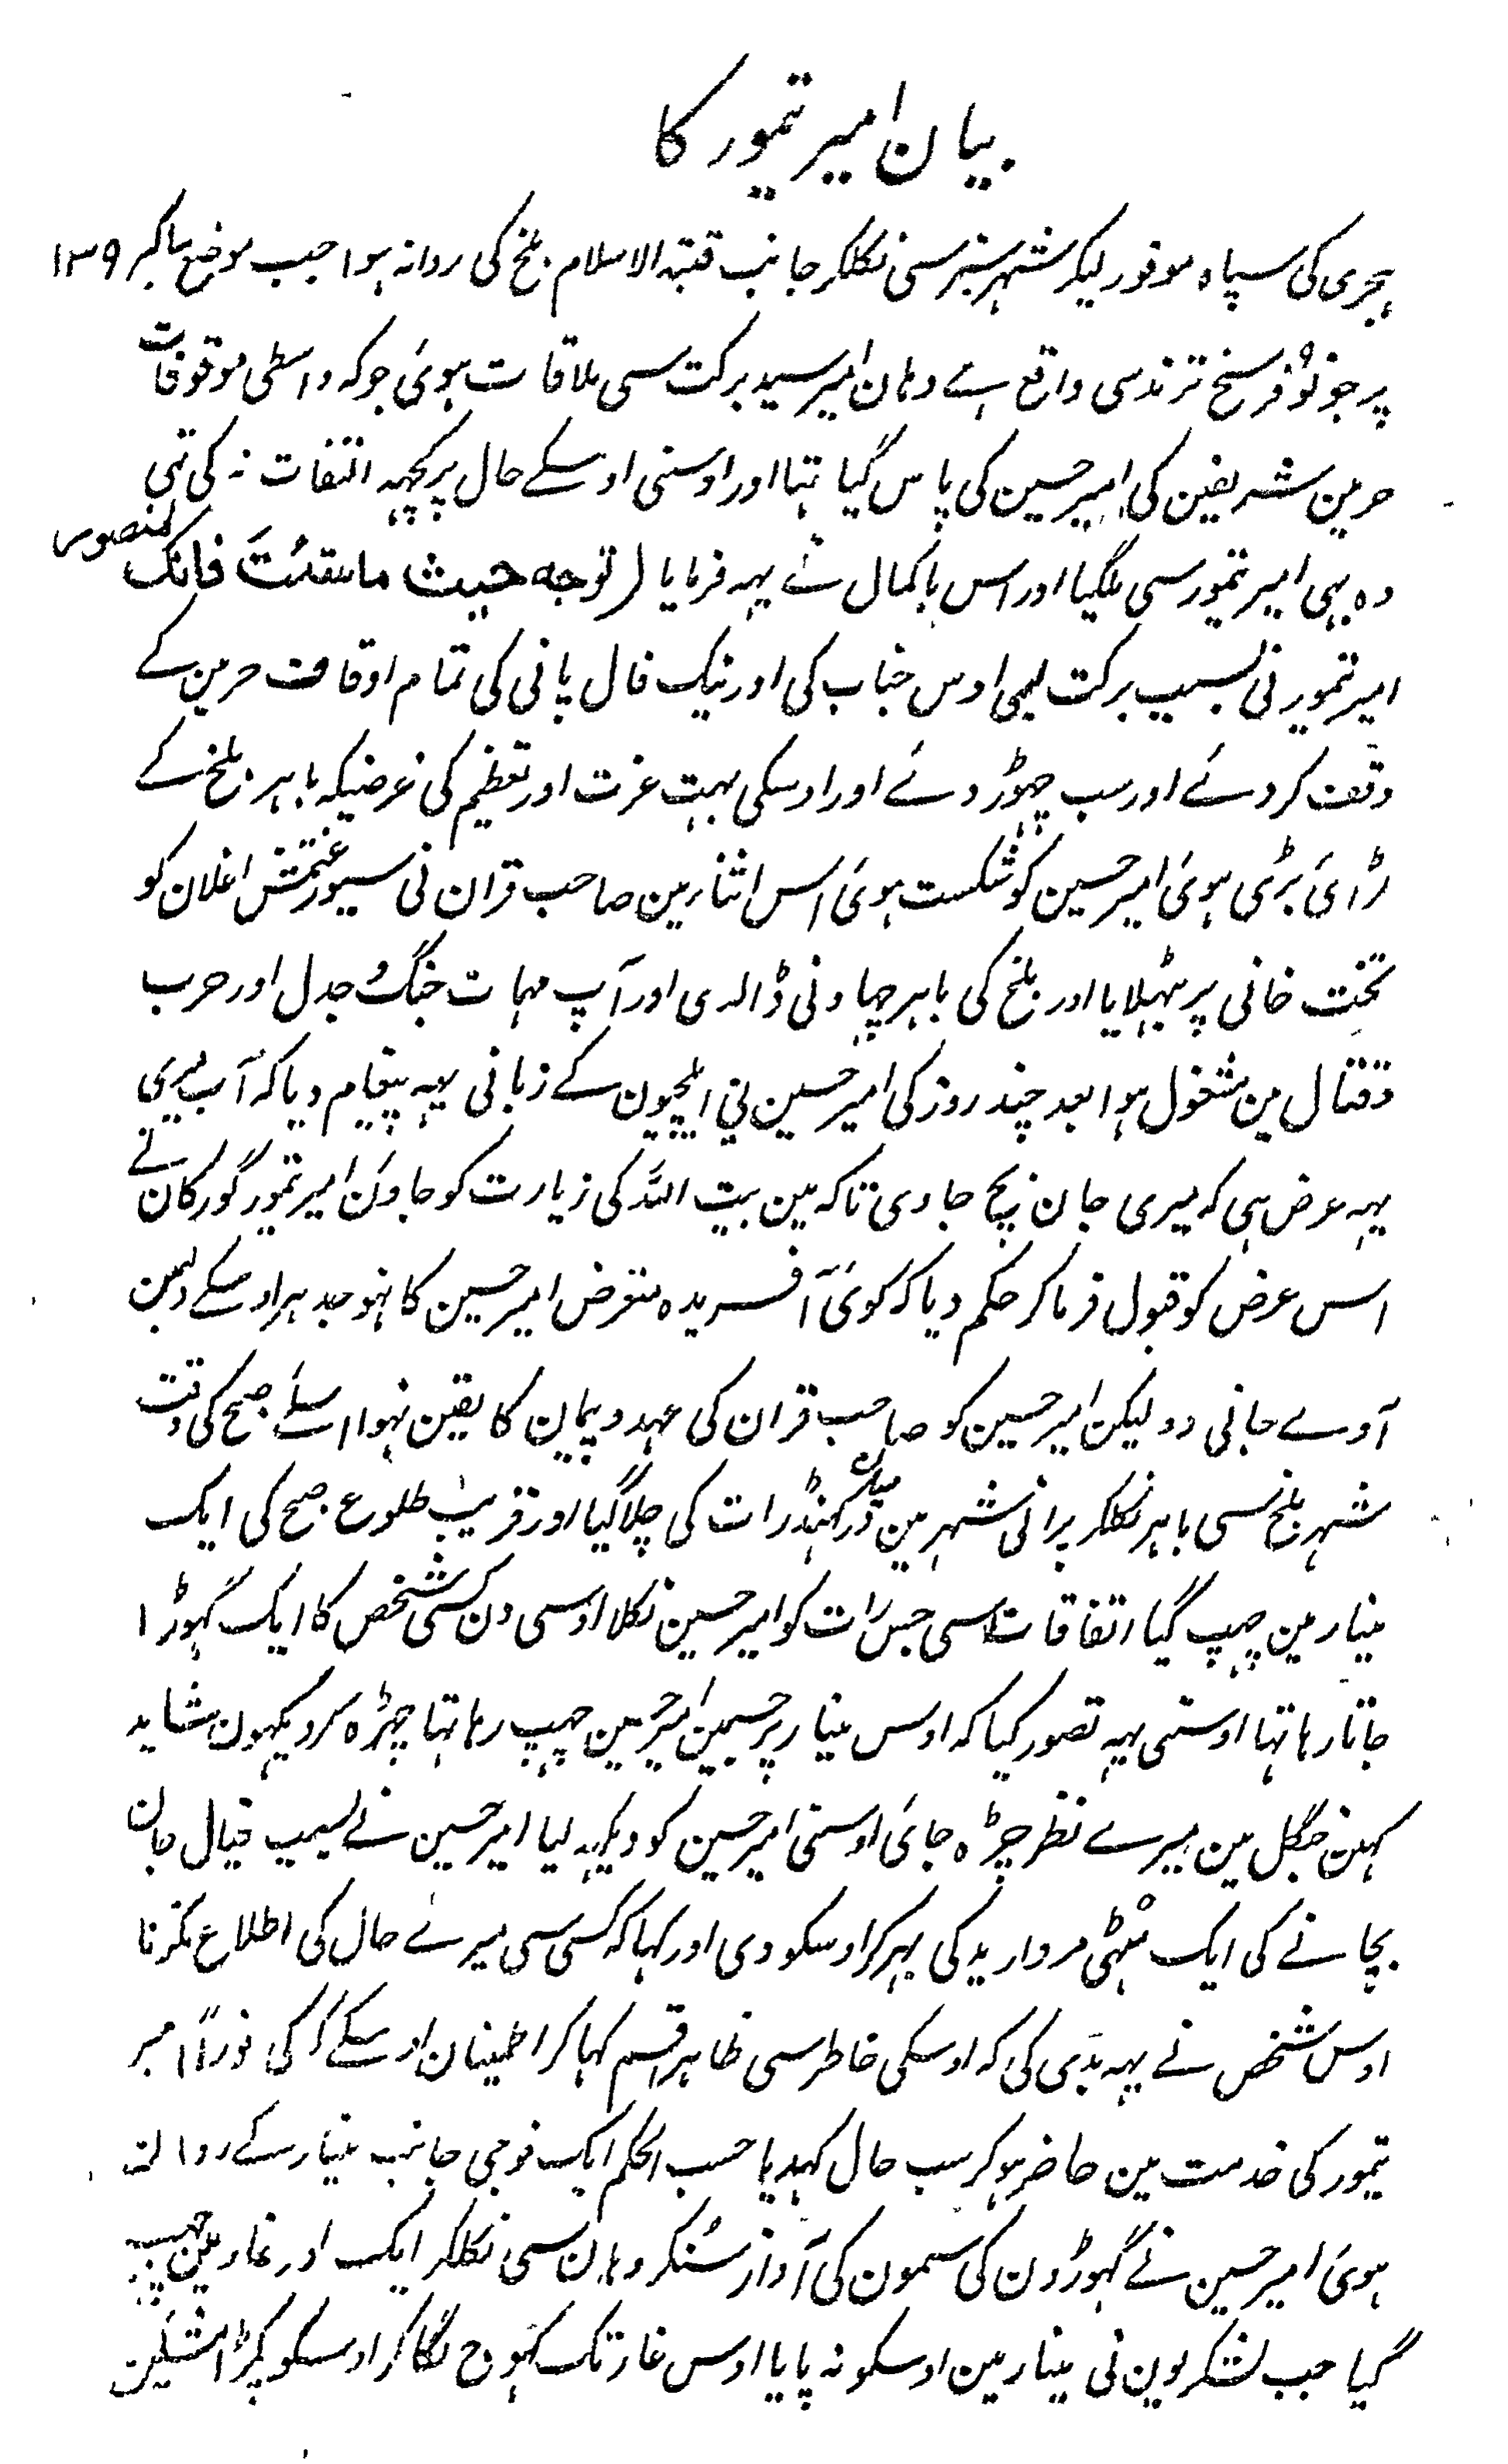 بیان امیر تیمور کا
ہجری کی سپاہ موفور لیکر شہر سبز سی نکلکر جانب قبتہ الاسلام بلخ کی روانہ ہوا جب موضع باکبر ۱۳۹
پر جو نو فرسخ ترمذ سی واقع ہے وہان امیر سید برکت سی ملاقات ہوئی جو کہ واسطی موقوفات
حرمین شریفین کی امیر حسین کی پاس گیا تہا اور اوسنی اوسکے حال پر کچہہ التفات نہ کی تہی
وہ بہی امیر تیمور سی ملگیا اور اس باکمال نے یہہ فرمایا (توجه حیث ماشئتَ فانک لمنصور
امیر تیمور نی بسبب برکت لیمی اوس جناب کی اور نیک فال پانی کی تمام اوقاف حرمین کے
وقف کر دئے اور سب چہوڑ دئے اور اوسکی بہت عزت اور تعظیم کی غرضیکہ باہر بلخ کے
لڑائی بڑی ہوئی امیر حسین کو شکست ہوئی اس اثنا رمین صاحب قران نی سیورغتمش اغلان کو
تخت خانی پر بٹہلایا اور بلخ کی باہر چہاونی ڈالدی اور آپ مہمات جنگ و جدل اور حرب
و قتال مین مشغول ہوا بعد چند روز کی امیر حسین نی ایلچیون کے زبانی یہہ پیغام دیا کہ آپ میری
یہہ عرض ہی کہ میری جان بچ جاوی تاکہ مین بیت اللہ کی زیارت کو جاؤن امیر تیمور گورکان نے
اس عرض کو قبول فرما کر حکم دیا کہ کوئی آفریدہ متعرض امیر حسین کا نہو جدہر اوسکے دلمین
آوے جانی دو لیکن امیر حسین کو صاحب قران کی عہد و پیمان کا یقین نہوا اسلئے صبح کی وقت
شہر بلخ سی باہر نکلکر پرانی شہر مین میان کہنڈرات کی چلا گیا اور قریب طلوع صبح کی ایک
مینار مین چہپ گیا اتفاقات سی جس رات کو امیر حسین نکلا اوسی دن کسی شخص کا ایک گہوڑا
جاتا رہا تہا اوسنی یہہ تصور کیا کہ اوس مینار پر جسمین امیر حسین چہپ رہا تہا چڑہ کر دیکہون شاید
کہین جنگل مین میرے نظر چڑہ جائی اوسنی امیر حسین کو دیکہہ لیا امیر حسین نے بسبب خیال جان
بچانے کی ایک مٹہی مروارید کی بہر کر اوسکو دی اور کہا کہ کسی سی میرے حال کی اطلاع نکرنا
اوس شخص نے یہہ بدی کی کہ اوسکی خاطر سی ظاہرا قسم کہا کر اطمینان اوسکے کر کی فوراً امیر
تیمور کی خدمت مین حاضر ہو کر سب حال کہدیا حسب الحکم ایک فوجی جانب مینار سکے روانہ
ہوئی امیر حسین نے گہوڑون کی سمون کی آواز سنکر وہان سی نکلکر ایک اور غار مین چہپ
گیا جب لشکریون نی مینار مین اوسکو نہ پایا اوس غار تک کہوج لگا کر اوسکو پکڑا مشکین